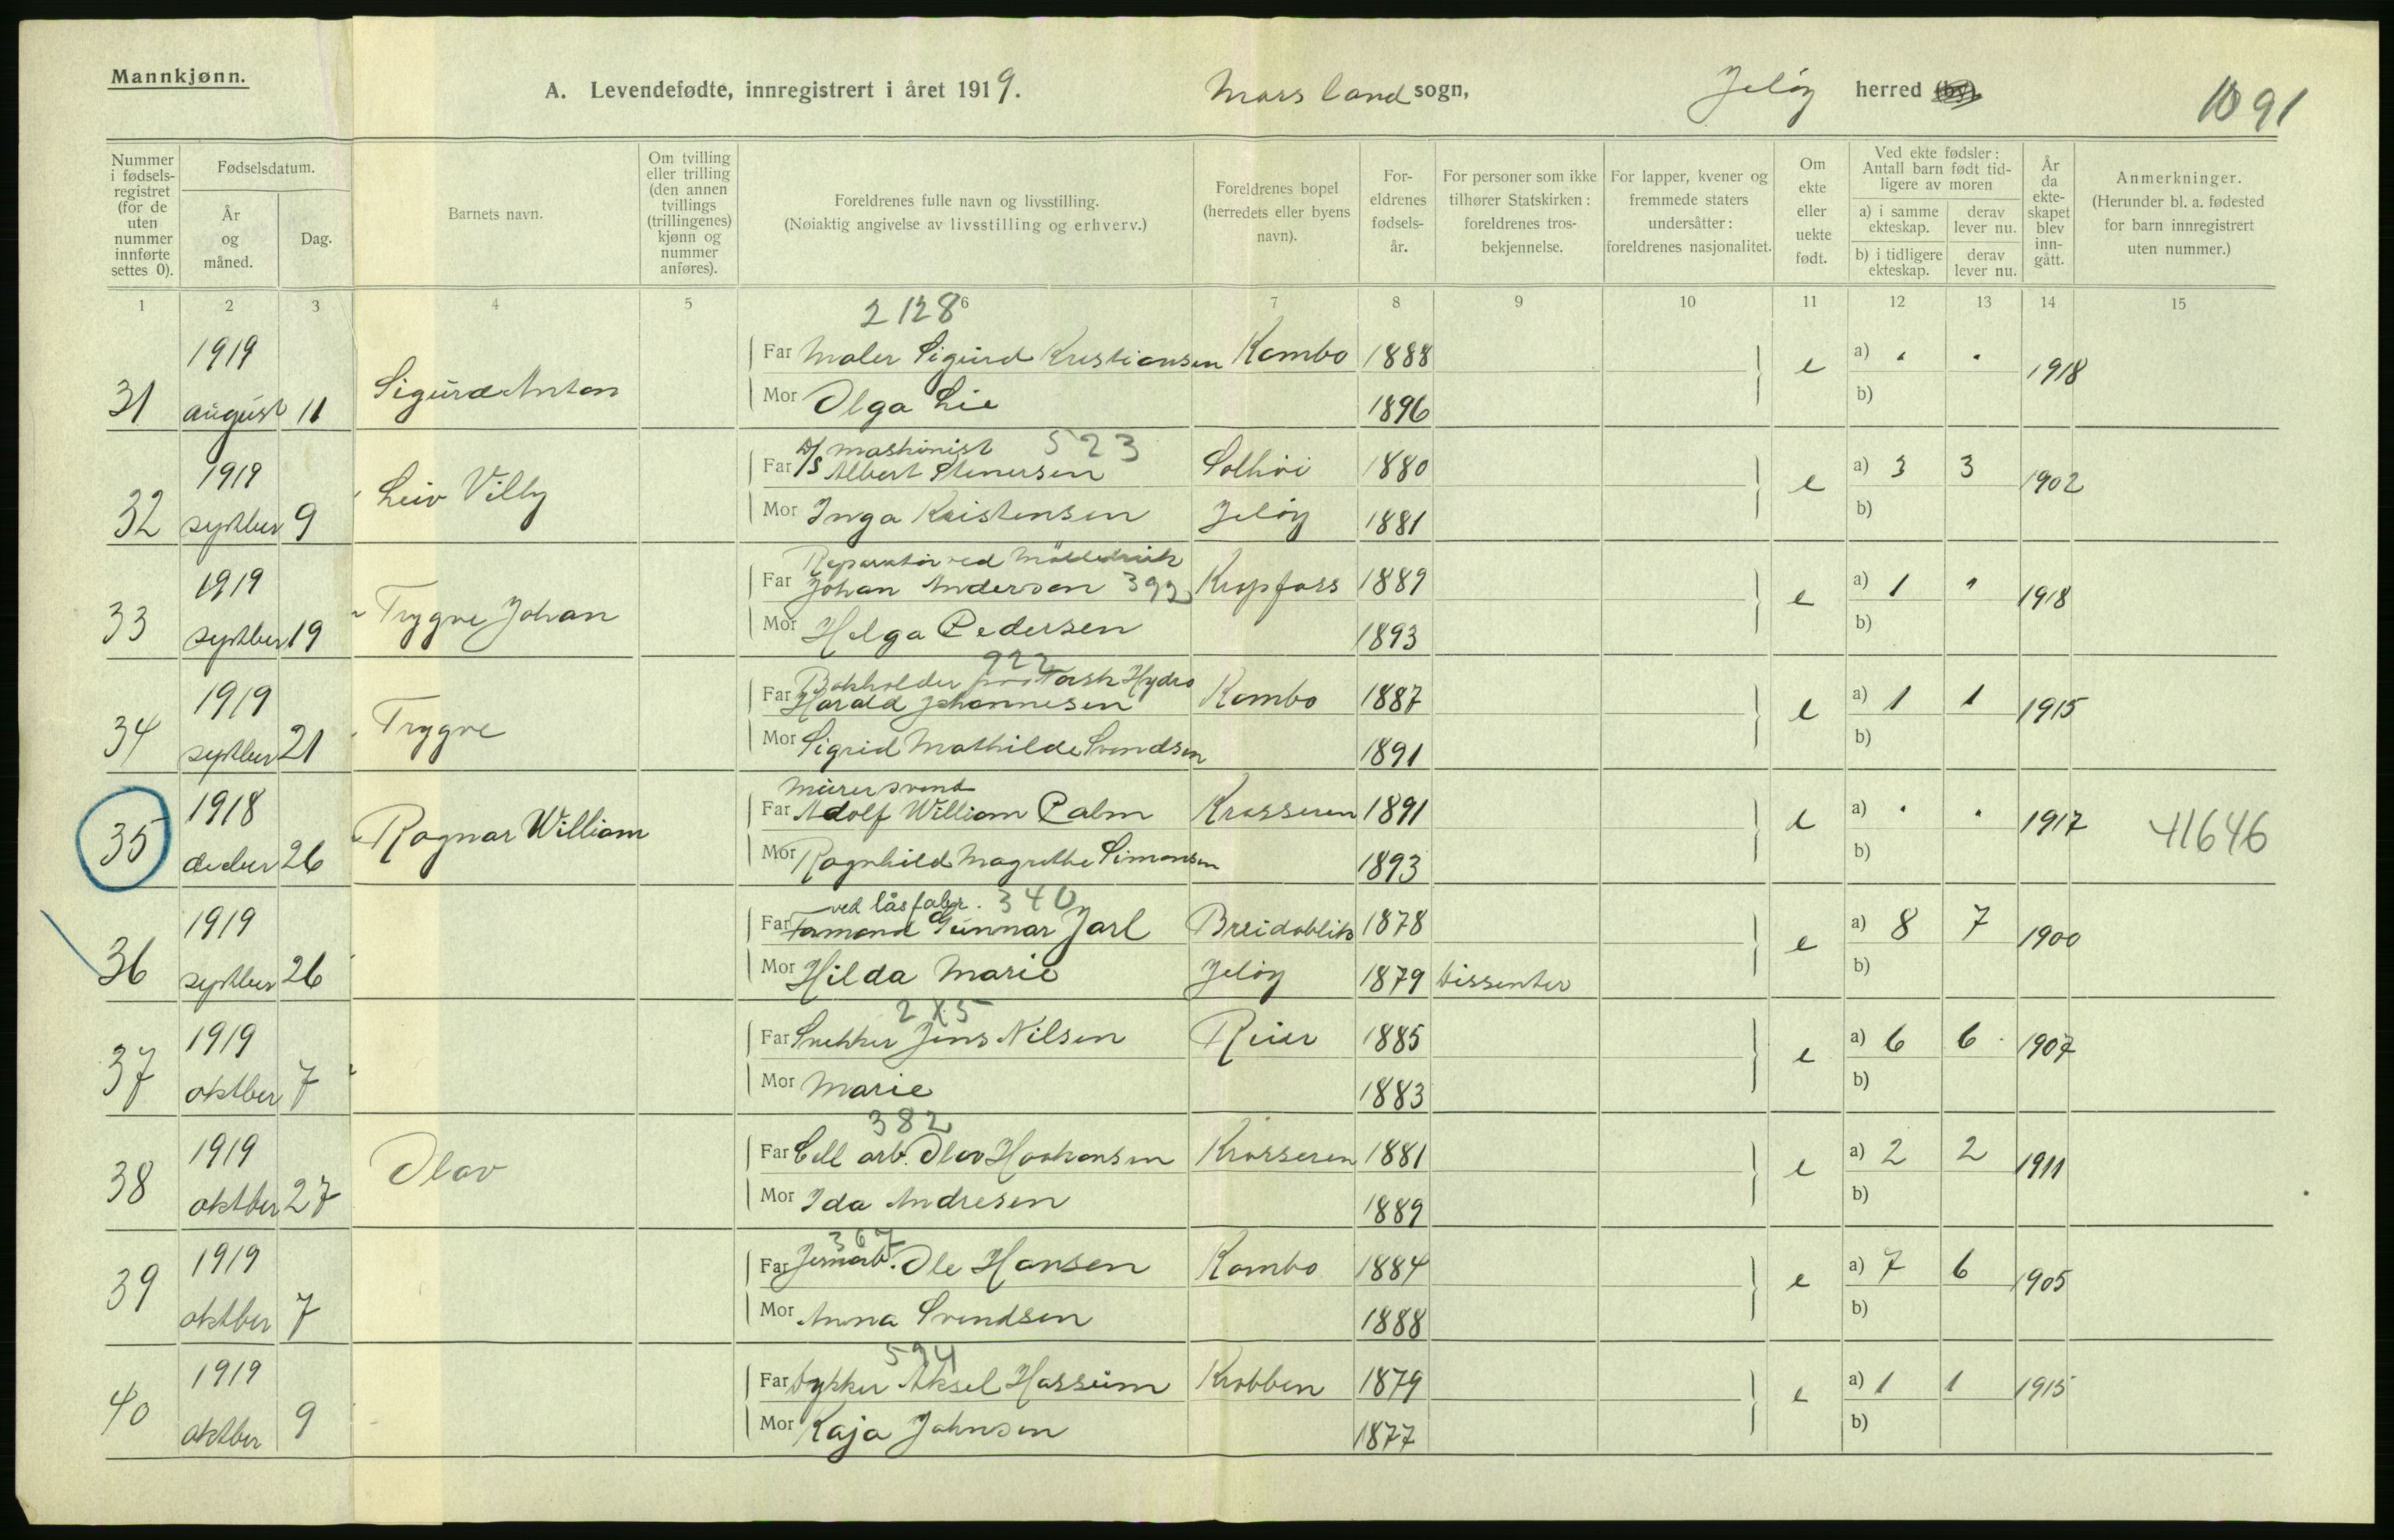 Mannkjønn.
A. Levendefødte, innregistrert i året 1919. Moss land sogn, Jeløy herred 1091
Nummer i fødsels-registret (for de uten nummer innførte settes 0).
Fødselsdatum.
År og måned.
Dag.
Barnets navn.
Om tvilling eller trilling (den annen tvillings (trillingenes) kjønn og nummer anføres).
Foreldrenes fulle navn og livsstilling.
(Nøiaktig angivelse av livsstilling og erhverv.)
Foreldrenes bopel (herredets eller byens navn).
For-eldrenes fødsels-år.
For personer som ikke tilhører Statskirken: foreldrenes tros-bekjennelse.
For lapper, kvener og fremmede staters undersåtter: foreldrenes nasjonalitet.
Om ekte eller uekte født.
Ved ekte fødsler: Antall barn født tid-ligere av moren
a) i samme ekteskap.
derav lever nu.
b) i tidligere ekteskap.
derav lever nu.
År da ekte-skapet blev inn-gått.
Anmerkninger.
(Herunder bl. a. fødested for barn innregistrert uten nummer.)
1 2 3 4 5 6 7 8 9 10 11 12 13 14 15
2128
1919
Far Maler Sigurd Kristiansen Kambo 1888
31 august 11 Sigurd Anton e a) " " 1918
Mor Olga Lie 1896 b)
D/S maskinist 523
1919 Far Albert Stenersen Solhøi 1880
32 septber 9 Leiv Villy e a) 3 3 1902
Mor Inga Kristensen Jeløy 1881 b)
Reparatør ved
1919 Far Johan Anderson 399 Krapfoss 1889
33 septber 19 Trygve Johan e a) 1 " 1918
Mor Helga Pedersen 1893 b)
922
Bokholder Norsk Hydro
1919 Far Harald Johannesen Kambo 1887
34 septber 21 Trygve e a) 1 1 1915
Mor Sigrid Mathilde Svendsen 1891 b)
Murersvend
1918 Far Adolf William Palm Krosseren 1891
35 decber 26 Ragnar William e a) " " 1917 41646
Mor Ragnhild Magrethe Simonsen 1893 b)
ved låsfabr. 340
1919 Far Formand Gunnar Jarl Breidablik 1878
36 septber 26 e a) 8 7 1900
Mor Hilda Marie Jeløy 1879 Dissenter b)
285
1919 Far Snekker Jens Nilsen Reier 1885
37 oktber 7 e a) 6 6 1907
Mor Marie 1883 b)
382
1919 Far Cell arb. Olav Haakonsen Krosseren 1881
38 oktber 27 Olav e a) 2 2 1911
Mor Ida Andresen 1889 b)
367
1919 Far Jernarb. Ole Hansen Kambo 1884
39 oktber 7 e a) 7 6 1905
Mor Anna Svendsen 1888 b)
594
1919 Far Dykker Aksel Hassum Krabben 1879
40 oktber 9 e a) 1 1 1915
Mor Kaja Johnsen 1877 b)